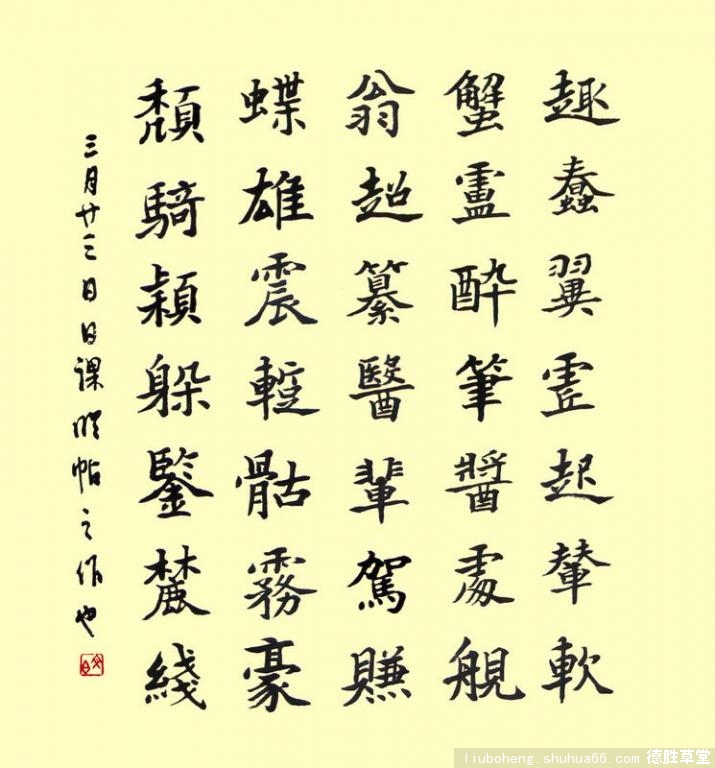 趣蠢翼霊起輦軟
蟹靈醉筆醬處觍
翁超纂醫輩駕賺
蝶雄震蹔骷霧豪
頹騎穎躲鑒麓綫
三月廿三日日課臨帖之作也
liuboheng.shuhua66.com 德胜草堂